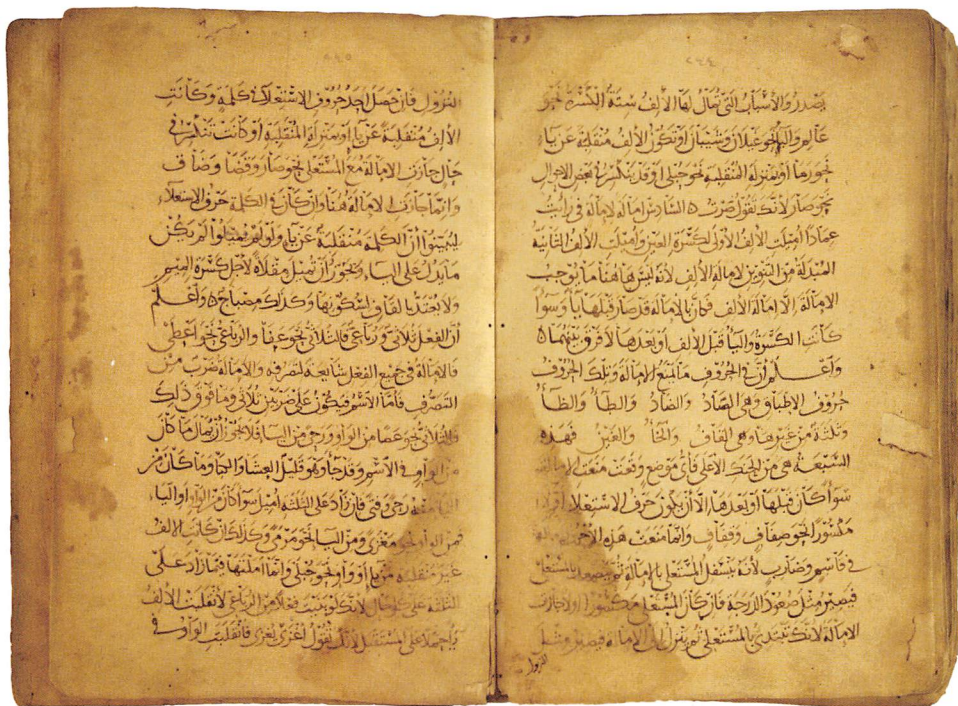 بصدد والأسباب التي تمال لها الألف ستة الكسرة نحو
عالم والياء نحو غيلان وشيبان أو تكون الألف منقلبة عن ياء
نحو رمى أو بمنزلة المنقلبة نحو حبلى أو قد ينكسر في بعض الأحوال
نحو صار لأنك تقول صرت الإمالة لإمالة في رأيت
عمادا أميلت الألف الأولى لكسرة العين وأميلت الألف الثانية
المبدلة من التنوين لإمالة الألف لأنه ليس هاهنا ما يوجب
الإمالة إلا إمالة الألف فكأنها بالإمالة قد صار قبلها ياء وسواء
كانت الكسرة والياء قبل الألف أو بعدها لا فرق بينهما
واعلم أن في الحروف ما يمنع الإمالة وتلك الحروف
حروف الإطباق وهي الصاد والضاد والطاء والظاء
وثلثة من غيرها وهي القاف والخاء والغين فهذه
السبعة هي من الحنك الأعلى فأي موضع وقعت منعت الإمالة
سواء كان قبلها أو بعدها إلا أن يكون حرف الاستعلاء أولا
مكسورا نحو صفاف وقفاف وإنما منعت هذه الأحرف
في قاسم وضارب لأنه يتسفل المستعلي بالإمالة ثم يتصعد بالمستعلي
فيصير مثل صعود الدرجة فإن كان المستعلي مكسورا أولا جازت
الإمالة لأنك تبتدئ بالمستعلي ثم ينزل إلى الإمالة فيصير مثل
النزول
النزول فإن حصل أحد حروف الاستعلاء في كلمة وكانت
الألف منقلبة عن ياء أو بمنزلة المنقلبة أو كانت تنكسر في
حال جازت الإمالة مع المستعلي نحو صار وقضا وضاف
وإنما جازت الإمالة هنا وإن كان في الكلمة حرف الاستعلاء
ليبينوا أن الكلمة منقلبة عن ياء ولو لم يميلوا لم يكن
ما يدل على الياء ويجوز أن تميل مقلاة لأجل كسرة الميم
ولا يعتد بالقاف لسكونها وكذلك مصباح واعلم
أن الفعل ثلاثي ورباعي فالثلاثي نحو عفا والرباعي نحو أعطى
فالإمالة في جميع الفعل سائغة لتصرفه والإمالة ضرب من
التصرف فأما الاسم فيكون على ضربين ثلاثي وما فوق ذلك
فالثلاثي نحو عصا من الواو ورحى من الياء فلا يجوز أن يمال ما كان
من الواو في الاسم وقد جاء وهو قليل العشا وما كان من
الياء رحى وفتى فإن زاد على الثلثة أميل سواء كان من الواو أو الياء
فمن الواو نحو مغزى ومن الياء نحو مرمى وكذلك إن كانت الألف
غير منقلبة من ياء أو واو نحو حبلى وإنما أملتها فيما زاد على
الثلثة على كل حال لأنك لو بنيت فعلا من الرباعي لانقلبت الألف
ياء حملا على المستقبل لأنك تقول أغزى يغزي فانقلبت الواو في